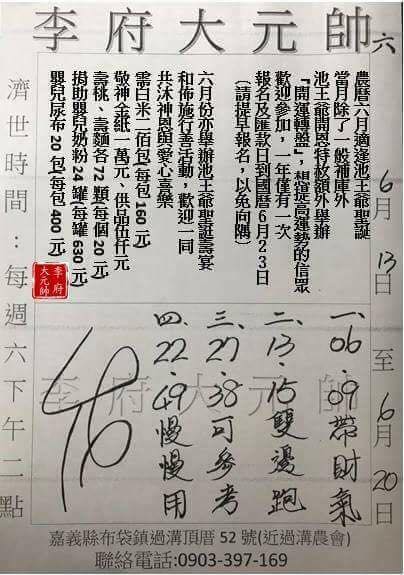 李府大元帥
六
6月13日至6月20日
農曆六月適逢池王爺聖誕
當月除了一般補庫外
池王爺開恩特敕額外舉辦
『開運轉盤』，想提高運勢的信眾
歡迎參加，一年僅有一次
報名及匯款日到國曆6月23日
（請提早報名，以免向隅）
六月份亦舉辦池王爺聖誕壽宴
和佈施行善活動，歡迎一同
共沐神恩與愛心喜樂
需白米二佰包(每包 160 元)
敬神金紙一萬元、供品伍仟元
壽桃、壽麵各 72 顆(每個 20 元)
捐助嬰兒奶粉 24 罐(每罐 630 元)
嬰兒尿布 20 包(每包 400 元)
李府大元帥
李府大元帥
一、06.09帶財氣
二、13.15雙邊跑
三、27.38可參考
四、22.49慢慢用
濟世時間:每週六下午二點
嘉義縣布袋鎮過溝頂厝 52 號(近過溝農會)
聯絡電話:0903-397-169